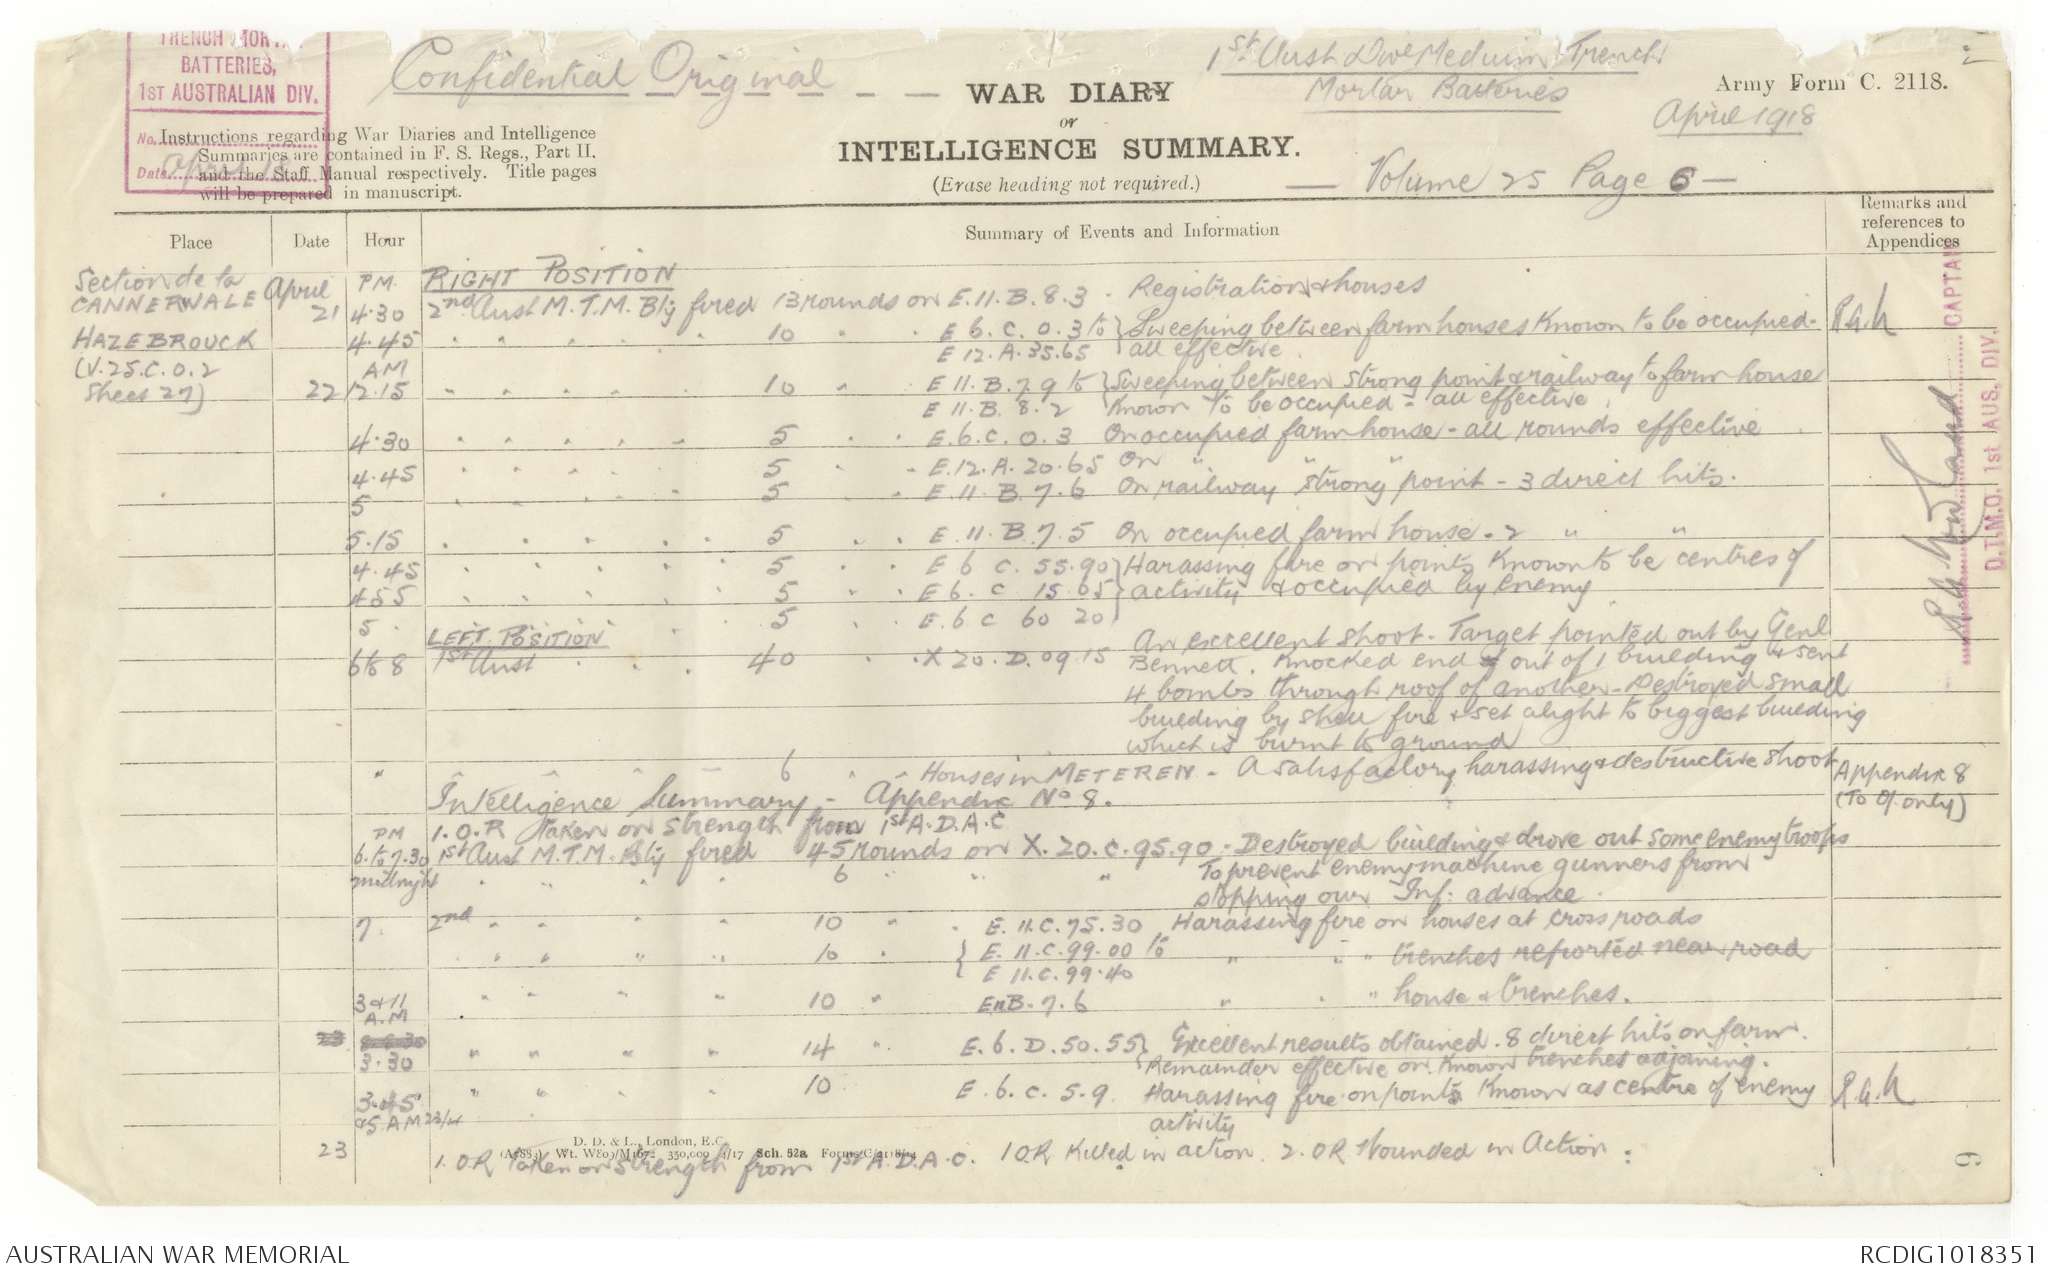 TRENCH MORTAR
BATTERIES,
1ST AUSTRALIAN DIV.
No.
Date April 18
Confidential Original
WAR DIARY
or
INTELLIGENCE SUMMARY.
(Erase heading not required.)
1st Aust Divl Medium Trench
Mortar Batteries
Army Form C. 2118.
April 1918
Volume 25 Page 6
Instructions regarding War Diaries and Intelligence
Summaries are contained in F. S. Regs., Part II.
and the Staff Manual respectively. Title pages
will be prepared in manuscript.
Place Date Hour Summary of Events and Information Remarks and references to Appendices
Section de la April PM. RIGHT POSITION
CANNERWALE 21 4.30 2nd Aust M.T.M. Bty fired 13 rounds on E.11.B.8.3 - Registration & houses
HAZEBROUCK 4.45 " " " " " 10 " " E 6.C.0.3 to } Sweeping between farm houses known to be occupied- R.A.N
E 12.A.35.65 all effective
(V.25.C.0.2 AM
Sheet 27) 22 12.15 " " " " " 10 " E 11.B.79 to } Sweeping between strong point & railway to farm house
E 11.B.8.2 known to be occupied - all effective.
4.30 " " " " " 5 " " E.6.C.0.3 On occupied farm house - all rounds effective
4.45 " " " " " 5 " " E.12.A.20.65 On " " "
5 " " " " " 5 " " E.11.B.7.6 On railway strong point - 3 direct hits.
5.15 " " " " " 5 " " E.11.B.7.5 On occupied farm house - 2 " "
4.45 " " " " " 5 " " E 6 C. 55.90 } Harassing fire on points known to be centres of
4.55 " " " " " 5 " " E 6. C 15.65 } activity & occupied by enemy
5. " " 5 " " E.6 C 60 20
LEFT POSITION
6 to 8 1st Aust " " " 40 " " X 20.D.09.15 An excellent shoot - Target pointed out by Genl
Bennett. Knocked end out of 1 building & sent
4 bombs through roof of another - Destroyed small
building by shell fire & set alight to biggest building
which is burnt to ground
" " " " 6 " " Houses in METEREN - A satisfactory harassing & destructive shoot
Intelligence Summary - Appendix No 8. Appendix 8
(To O/. only)
1.O.R Taken on strength from 1st A.D.A.C
PM
6. to 7.30 1st Aust M.T.M. Bty fired 45 rounds on X.20.C.95.90 - Destroyed building & drove out some enemy troops
midnight " " " " 6 " " " To prevent enemy machine gunners from
stopping our Inf: advance.
7. 2nd " " " 10 " " E.11.C.75.30 Harassing fire on houses at cross roads
" " " " 10 " { E.11.C.99.00 to " " " trenches reported near road
E 11.C.99.40
3 & 11 A.M " " " " 10 " E11B.7.6 " " " house & trenches.
23 3.30 " " " " 14 " E.6.D.50.55 } Excellent results obtained. 8 direct hits on farm.
Remainder effective on known trenches adjoining.
3.45 " " " " 10 E.6.C.5.9. Harassing fire on points known as centre of enemy R.A.N
&5 AM 23/4 activity
D. D. & L., London, E.C.
(A7883) Wt. W809/M1672 350,000 4/17 Sch. 52a Forms/C/2118/14
23 1.OR Taken on strength from 1st A.D.A.C. 1 OR Killed in action. 2. OR Wounded in Action.
CAPTAIN
D.T.M.O. 1st AUS. DIV.
6
AUSTRALIAN WAR MEMORIAL
RCDIG1018351